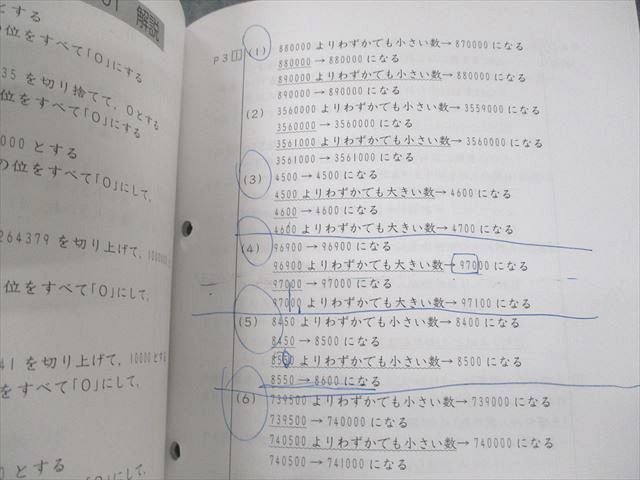 01 解説
とする
の位をすべて「0」にする
35 を切り捨てて, 0とする
位をすべて「0」にする
000 とする
の位をすべて「0」にして,
264379 を切り上げて,
位をすべて「0」にして,
41 を切り上げて, 10000とする
をすべて「0」にして,
0 とする
P3 1 (1) 880000 よりわずかでも小さい数→ 870000 になる
880000 → 880000 になる
890000 よりわずかでも小さい数→ 880000 になる
890000 → 890000 になる
(2) 3560000 よりわずかでも小さい数→ 3559000 になる
3560000 → 3560000 になる
3561000 よりわずかでも小さい数→ 3560000 になる
3561000 → 3561000 になる
(3) 4500 → 4500 になる
4500 よりわずかでも大きい数→ 4600 になる
4600 → 4600 になる
4600 よりわずかでも大きい数→ 4700 になる
(4) 96900 → 96900 になる
96900 よりわずかでも大きい数→ 97000 になる
97000 → 97000 になる
97000 よりわずかでも大きい数→ 97100 になる
(5) 8450 よりわずかでも小さい数→ 8400 になる
8450 → 8500 になる
8550 よりわずかでも小さい数→ 8500 になる
8550 → 8600 になる
(6) 739500 よりわずかでも小さい数→ 739000 になる
739500 → 740000 になる
740500 よりわずかでも小さい数→ 740000 になる
740500 → 741000 になる